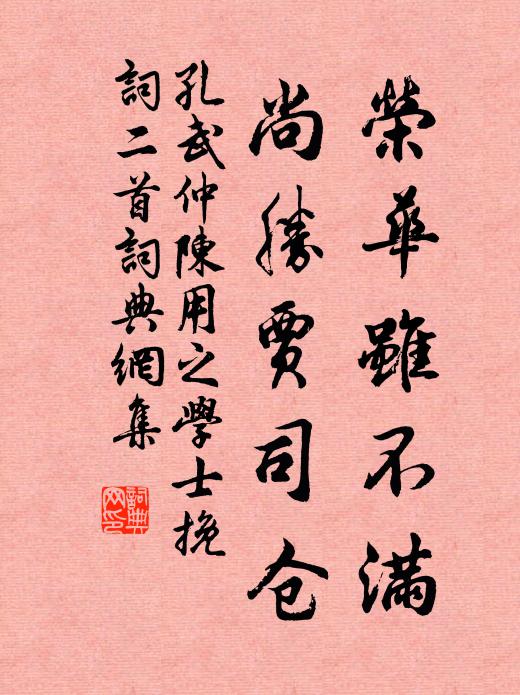 榮華雖不滿
尚勝賈司仓
孔武仲陳用之學士挽
詞二首詞典網集
詞典
网印